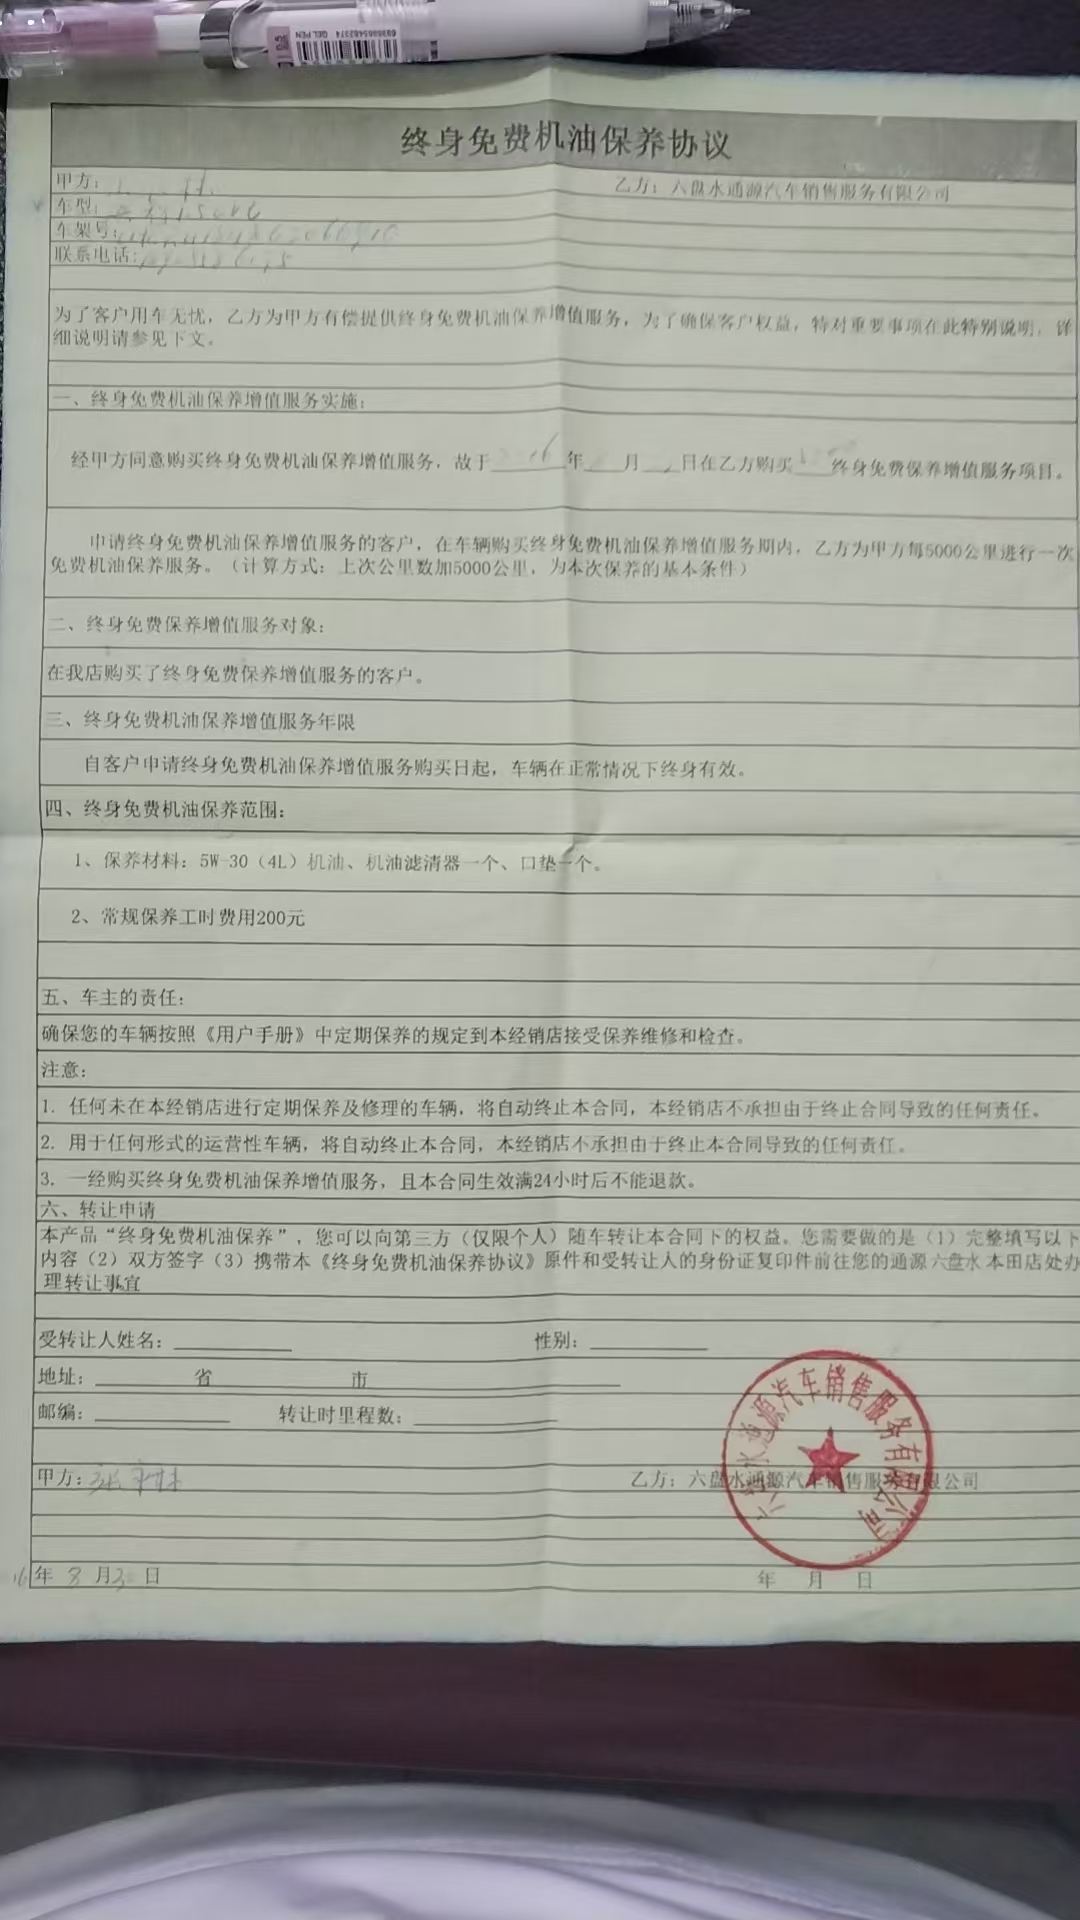 GEL PEN
终身免费机油保养协议
甲方：
乙方：六盘水通源汽车销售服务有限公司
车型：
车架号：
联系电话：
为了客户用车无忧，乙方为甲方有偿提供终身免费机油保养增值服务，为了确保客户权益，特对重要事项在此特别说明，详
细说明请参见下文。
一、终身免费机油保养增值服务实施：
经甲方同意购买终身免费机油保养增值服务，故于 年 月 日在乙方购买 终身免费保养增值服务项目。
申请终身免费机油保养增值服务的客户，在车辆购买终身免费机油保养增值服务期内，乙方为甲方每5000公里进行一次
免费机油保养服务。（计算方式：上次公里数加5000公里，为本次保养的基本条件）
二、终身免费保养增值服务对象：
在我店购买了终身免费保养增值服务的客户。
三、终身免费机油保养增值服务年限
自客户申请终身免费机油保养增值服务购买日起，车辆在正常情况下终身有效。
四、终身免费机油保养范围：
1、保养材料：5W-30（4L）机油、机油滤清器一个、口垫一个。
2、常规保养工时费用200元
五、车主的责任：
确保您的车辆按照《用户手册》中定期保养的规定到本经销店接受保养维修和检查。
注意：
1. 任何未在本经销店进行定期保养及修理的车辆，将自动终止本合同，本经销店不承担由于终止合同导致的任何责任。
2. 用于任何形式的运营性车辆，将自动终止本合同，本经销店不承担由于终止本合同导致的任何责任。
3. 一经购买终身免费机油保养增值服务，且本合同生效满24小时后不能退款。
六、转让申请
本产品“终身免费机油保养”，您可以向第三方（仅限个人）随车转让本合同下的权益。您需要做的是（1）完整填写以下
内容（2）双方签字（3）携带本《终身免费机油保养协议》原件和受转让人的身份证复印件前往您的通源六盘水本田店处办
理转让事宜
受转让人姓名： 性别：
地址： 省 市
邮编： 转让时里程数：
甲方：
乙方：六盘水通源汽车销售服务有限公司
六盘水通源汽车销售服务有限公司
16年 8 月 日
年 月 日